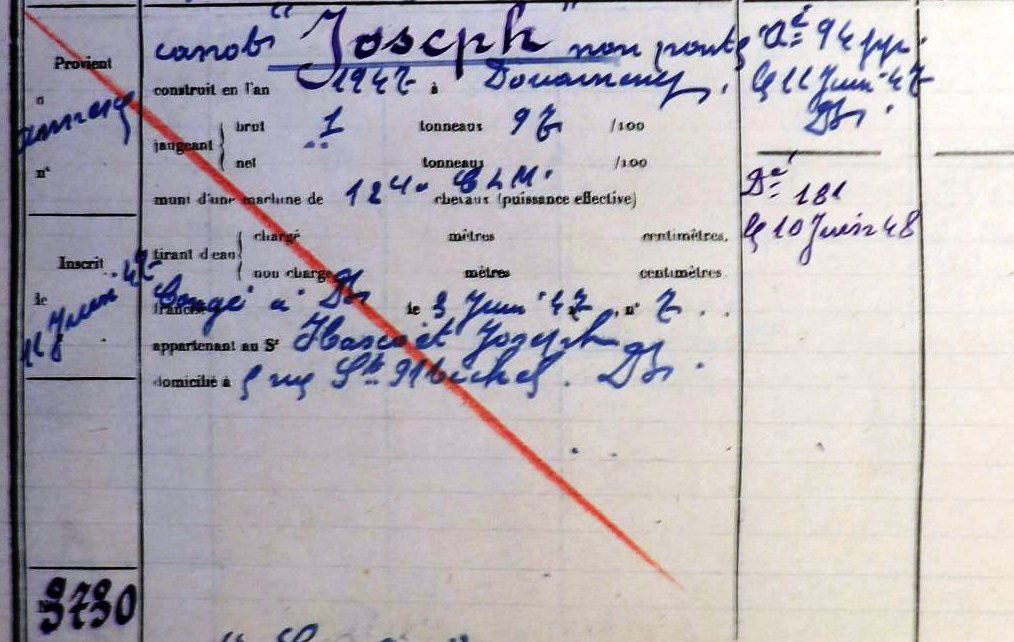 Provient
d
annexe
n°
Inscrit
le
11 Juin 47
N° 3730
canot "Joseph" non ponté
construit en l'an 1947 à Douarnenez.
jaugeant { brut 1 tonneaux 97 /100
net tonneaux /100
muni d'une machine de 12 chevaux (puissance effective)
tirant d'eau { chargé mètres centimètres.
non chargé mètres centimètres
francisé Congé à Dz le 3 Juin 47, n° 7.
appartenant au Sr Hascoët Joseph
domicilié à 5 rue St Michel. Dz.
Dz.
le 11 Juin 47
Dé 181
le 10 Juin 48